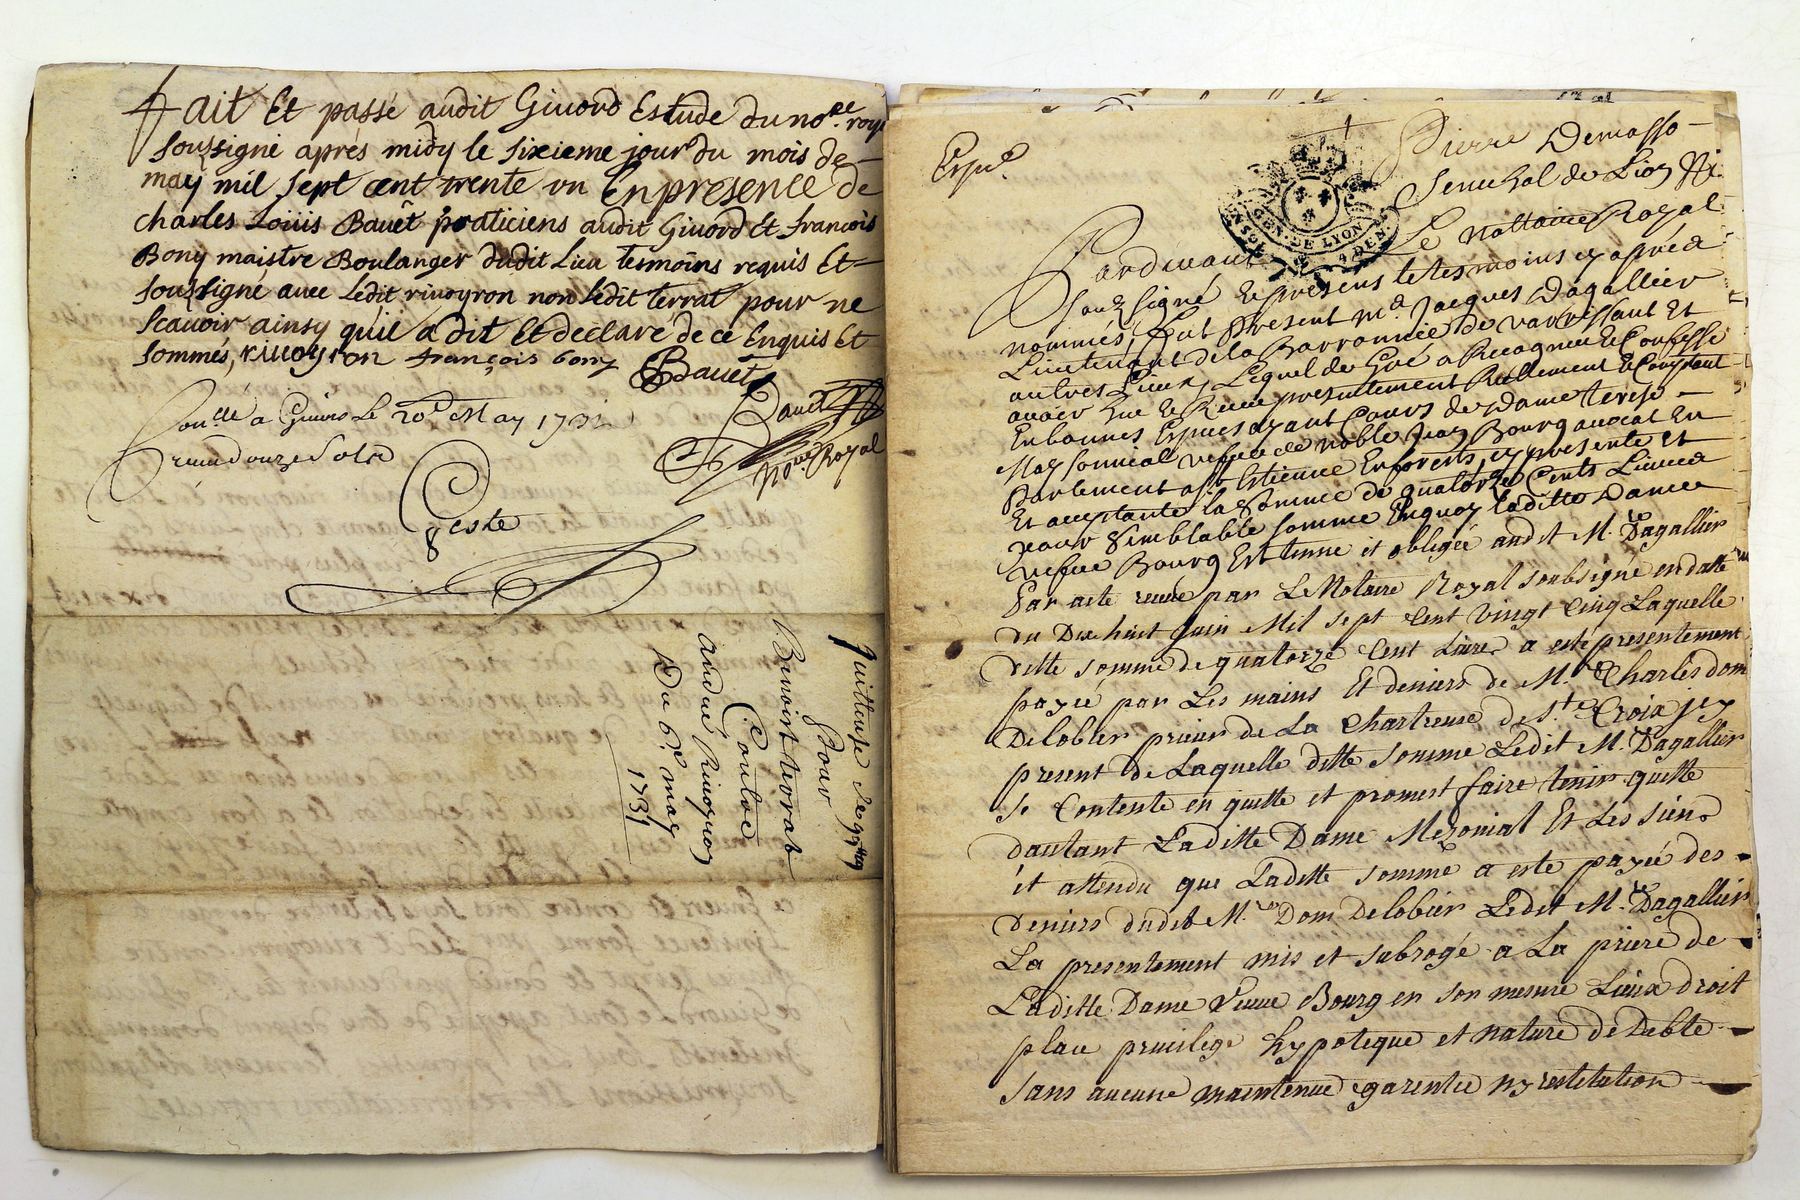 Fait Et passé audit Givord Estude du no.re roya
soussigné aprés midy le sixieme jour du mois de
may mil sept cent trente un En presence de
charles Loüis Bavêt praticiens audit Givord Et francois
Bony maistre Boulanger dudit Lieu tesmoins requis Et
soussigné avec Ledit rivoyron non Ledit terrat pour ne
scavoir ainsy qu'il a dit Et declaré de ce Enquis Et
sommés, rivoyron françois bony Bavet
Con.llé a Givors Le 20.e May 1731
Bavet
receu douze sols
No.re Royal
Geste
Quittense de 99
Pour
Benoist terrat
Contre
andré Rivoyron
Du 6.e may
1731
Pierre Demasso
Senechal de Lion
GEN. DE LYON
Pardevant Le Nottaire Royal
Souzsigné Et presens les tesmoins cy aprés
nommés, fut present M.e Jacques Dagallier
Lieutenant de la Barronnie de Varissant Et
autres Lieux, Lequel de Gré a Recogneu Et Confessé
avoir Eue Et Receu presentement Reellement Et Comptant
En bonnes Espuces ayant Cours de Dame terese
Maysonnial vefve de noble Jean Bourg avocat En
Parlement a St Estienne En forests, cy presente et
Et acceptante la Somme de quatorze Cents Livres
pour Semblable somme En quoy laditte Dame
vefve Bourg Est tenue et obligée audit M.re Dagallier
Par acte receu par Le Notaire Royal soubsigné en datte
du Dix huit Juin Mil sept Cent vingt Cinq Laquelle
ditte somme de quatorze Cent Livres a esté presentement
payée par Les mains Et deniers de M.re Charles dom
Delobier prieur de La Chartreuse de S.te Croix jcy
present de Laquelle ditte somme Ledit M.re Dagallier
se Contente en quitte et promest faire tenir quitte
dautant Laditte Dame Mezonial Et Les siens
et attendu que Ladite somme a este payée des
deniers dudit M.re Dom Delobier Ledit M.re Dagallier
La presentement mis et subrogé a La priere de
Laditte Dame Veuve Bourg en son mesme Lieux droit
place privilege hypoteque et nature de Debte
sans aucune maintenue garentie ny restitution